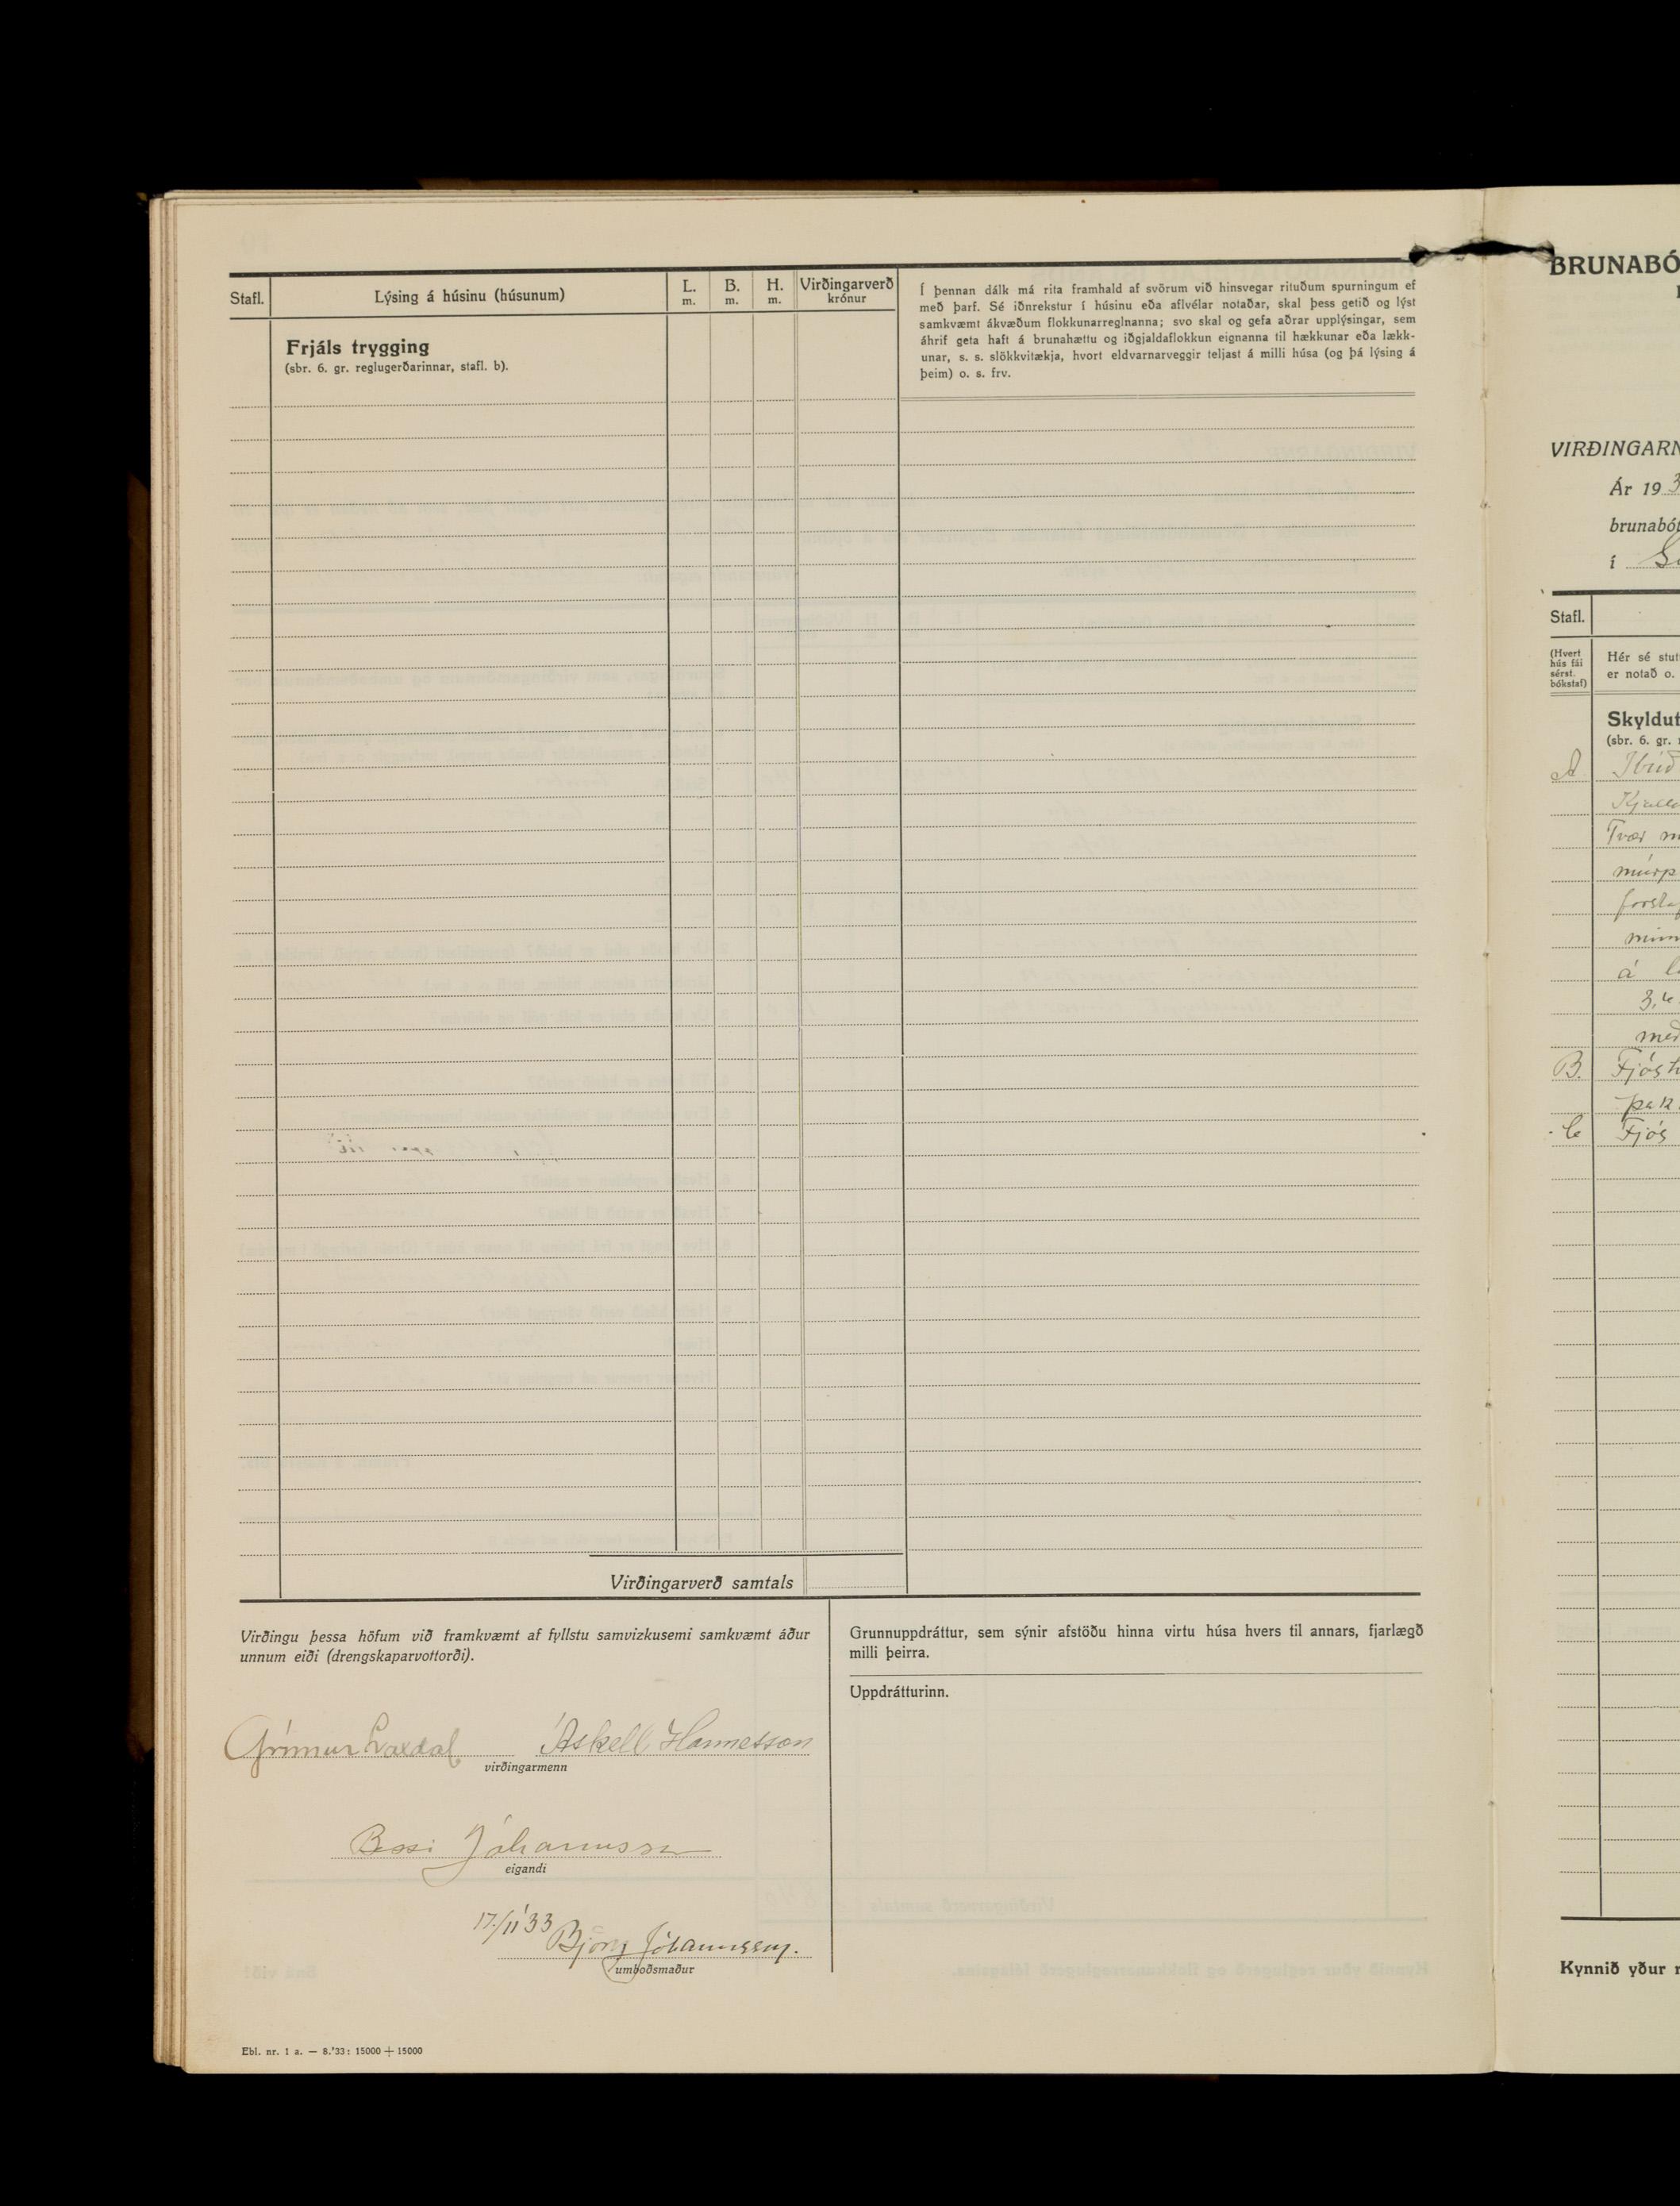 Stafl.
Lýsing á húsinu (húsunum)
L.
m.
B.
m.
H.
m.
Virðingarverð
krónur
Frjáls trygging
(sbr. 6. gr. reglugerðarinnar, stafl. b).
Í þennan dálk má rita framhald af svörum við hinsvegar rituðum spurningum ef
með þarf. Sé iðnrekstur í húsinu eða aflvélar notaðar, skal þess getið og lýst
samkvæmt ákvæðum flokkunarreglnanna; svo skal og gefa aðrar upplýsingar, sem
áhrif geta haft á brunahættu og iðgjaldaflokkun eignanna til hækkunar eða lækk-
unar, s. s. slökkvitækja, hvort eldvarnarveggir teljast á milli húsa (og þá lýsing á
þeim) o. s. frv.
Virðingarverð samtals
Virðingu þessa höfum við framkvæmt af fyllstu samvizkusemi samkvæmt áður
unnum eiði (drengskaparvottorði).
Grímur Laxdal Áskell Hannesson
virðingarmenn
Bessi Jóhannsson
eigandi
17/11 '33 Björn Jóhannsson.
umboðsmaður
Grunnuppdráttur, sem sýnir afstöðu hinna virtu húsa hvers til annars, fjarlægð
milli þeirra.
Uppdrátturinn.
Ebl. nr. 1 a. — 8.'33: 15000 + 15000
BRUNABÓ
VIRÐINGARN
Ár 193
brunabót
í
Stafl.
(Hvert
hús fái
sérst.
bókstaf)
Hér sé stut
er notað o.
Skyldut
(sbr. 6. gr. r
A Íbúð
Kjalla
Tvær m
múrp
forsto
minn
á
3,
með
B. Fjósh
þak
C Fjós
Kynnið yður r